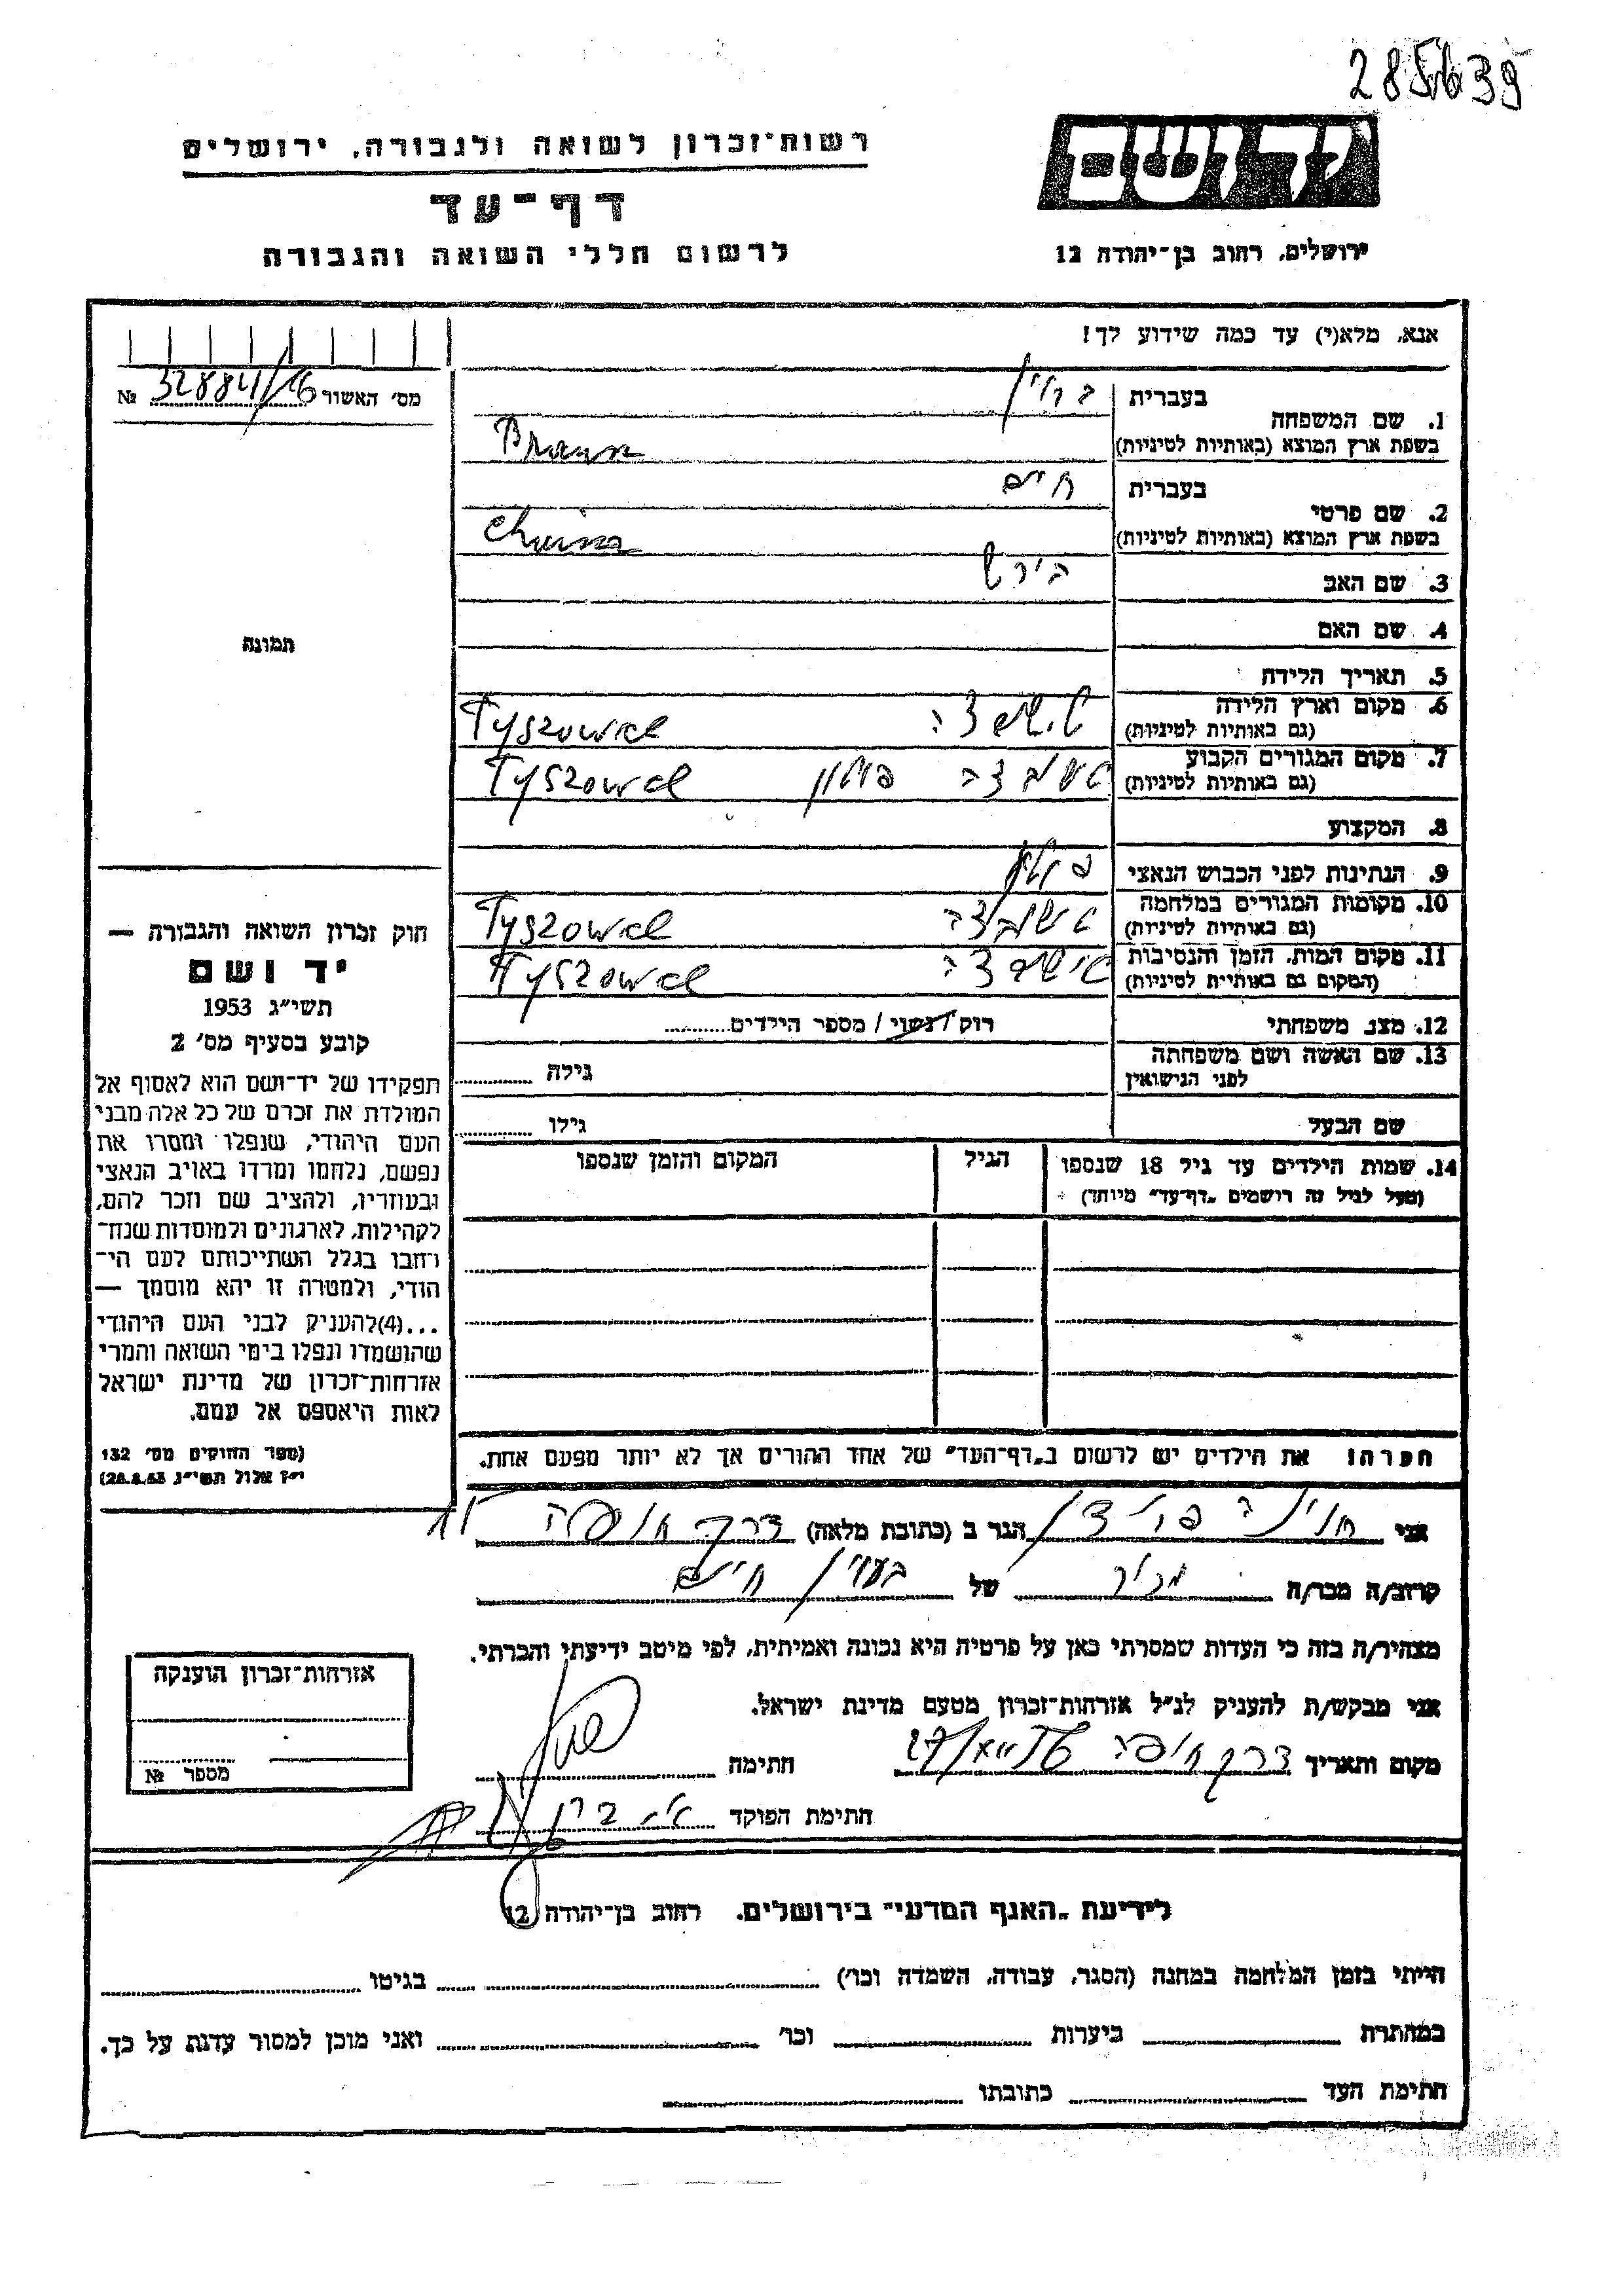 285639
רשות־זכרון לשואה ולגבורה, ירושלים
יד ושם
דף־עד
לרשום חללי השואה והגבורה
ירושלים, רחוב בן־יהודה 12
אנא, מלא(י) עד כמה שידוע לך!
מס' האשור 32884/16 №
1. שם המשפחה
בעברית ברוין
בשפת ארץ המוצא (באותיות לטיניות) Braun
2. שם פרטי
בעברית חיים
בשפת ארץ המוצא (באותיות לטיניות) Chaim
3. שם האב הירש
4. שם האם
תמונה
5. תאריך הלידה
6. מקום וארץ הלידה
(גם באותיות לטיניות) Tyszowce
7. מקום המגורים הקבוע
(גם באותיות לטיניות) פולין Tyszowce
8. המקצוע
9. הנתינות לפני הכבוש הנאצי פולין
10. מקומות המגורים במלחמה
(גם באותיות לטיניות) Tyszowce
11. מקום המות, הזמן והנסיבות
(המקום גם באותיות לטיניות) Tyszowce
12. מצב משפחתי רוק / נשוי / מספר הילדים
13. שם האשה ושם משפחתה
לפני הנישואין גילה
שם הבעל גילו
14. שמות הילדים עד גיל 18 שנספו הגיל המקום והזמן שנספו
(מעל לגיל זה רושמים "דף־עד" מיוחד)
חוק זכרון השואה והגבורה —
יד ושם
תשי"ג 1953
קובע בסעיף מס' 2
תפקידו של יד־ושם הוא לאסוף אל
המולדת את זכרם של כל אלה מבני
העם היהודי, שנפלו ומסרו את
נפשם, נלחמו ומרדו באויב הנאצי
ובעוזריו, ולהציב שם וזכר להם,
לקהילות, לארגונים ולמוסדות שנח־
רהבו בגלל השתייכותם לעם הי־
הודי, ולמטרה זו יהא מוסמך —
...(4)להעניק לבני העם היהודי
שהושמדו ונפלו בימי השואה והמרי
אזרחות־זכרון של מדינת ישראל
לאות היאספם אל עמם.
(ספר החוקים מס' 132
י"ז אלול תשי"ג 28.8.53)
הערה: את הילדים יש לרשום ב"דף־העד" של אחד ההורים אך לא יותר מפעם אחת.
אני הגר ב (כתובת מלאה)
קרוב/ה מכר/ה מכיר של חיים
מצהיר/ה בזה כי העדות שמסרתי כאן על פרטיה היא נכונה ואמיתית, לפי מיטב ידיעתי והכרתי.
אני מבקש/ת להעניק לנ"ל אזרחות־זכרון מטעם מדינת ישראל.
מקום ותאריך חתימה
חתימת הפוקד
אזרחות־זכרון הוענקה
מספר №
לידיעת "האגף המדעי" בירושלים, רחוב בן־יהודה 12
הייתי בזמן המלחמה במחנה (הסגר, עבודה, השמדה וכו') בגיטו
במחתרת ביערות וכו' ואני מוכן למסור עדות על כך.
חתימת העד כתובתו